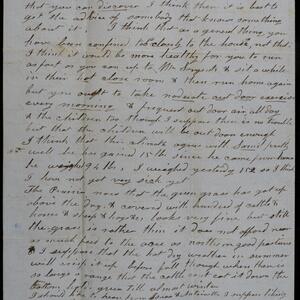 that you can discover I think then it is best to
get the advice of somebody that knows something
about it. I think that as a general thing, you
have been confined too closely to the house, not that
I think it would be more healthy for you to run
as fast as you can up to & sit a while
in their hot close room & then run home again
but you ought to take moderate out door exercise
every morning & frequent out door air all day
& the children too though I suppose there is no trouble
but that the children will be out door enough
I think that this climate agrees with pretty
well he has gained 15 lb since he came
he weighs 92 lbs, I weighed yesterday 152 so I think
I am not very sick yet
The Prairie now that the green grass has got up
above the dry & covered with hundreds of cattle &
horses & sheep & hogs &c, looks very fine but still
the grass is rather thin it does not afford near
as much feed to the acre as northern good pastures
& I suppose that the hot dry weather in summer
will crisp it up before fall though when there is
so large a range the cattle can eat it down the
green till almost winter
I should like to hear from & Antoinette I suppose